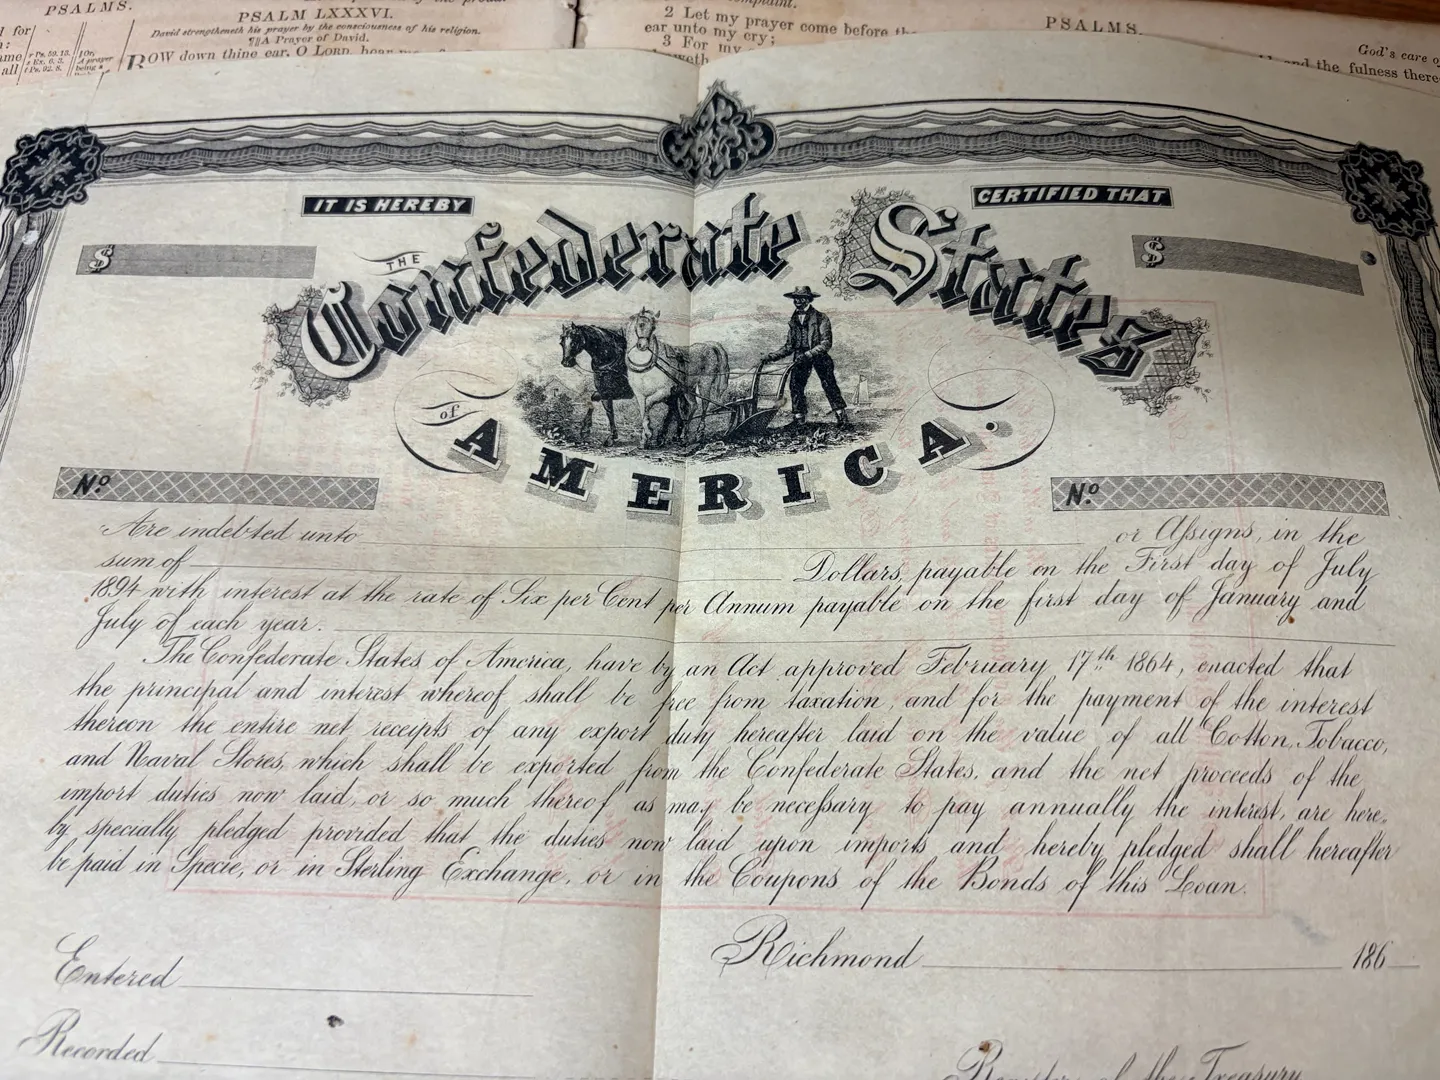 PSALMS.
PSALM LXXXVI.
David strengtheneth his prayer by the consciousness of his religion.
¶ A Prayer of David.
BOW down thine ear, O LORD, hear me
2 Let my prayer come before
ear unto my cry;
3 For my
PSALMS.
God's care
and the fulness there
IT IS HEREBY
CERTIFIED THAT
$
$
THE
Confederate States
of
AMERICA.
No.
No.
Are indebted unto or Assigns, in the
sum of Dollars, payable on the First day of July
1894 with interest at the rate of Six per Cent per Annum payable on the first day of January and
July of each year.
The Confederate States of America, have by an Act approved February 17th 1864, enacted that
the principal and interest whereof shall be free from taxation, and for the payment of the interest
thereon the entire net receipts of any export duty hereafter laid on the value of all Cotton, Tobacco,
and Naval Stores, which shall be exported from the Confederate States, and the net proceeds of the
import duties now laid, or so much thereof as may be necessary to pay annually the interest, are here-
by specially pledged provided that the duties now laid upon imports and hereby pledged shall hereafter
be paid in Specie, or in Sterling Exchange, or in the Coupons of the Bonds of this Loan.
Richmond 186
Entered
Recorded
Register of the Treasury